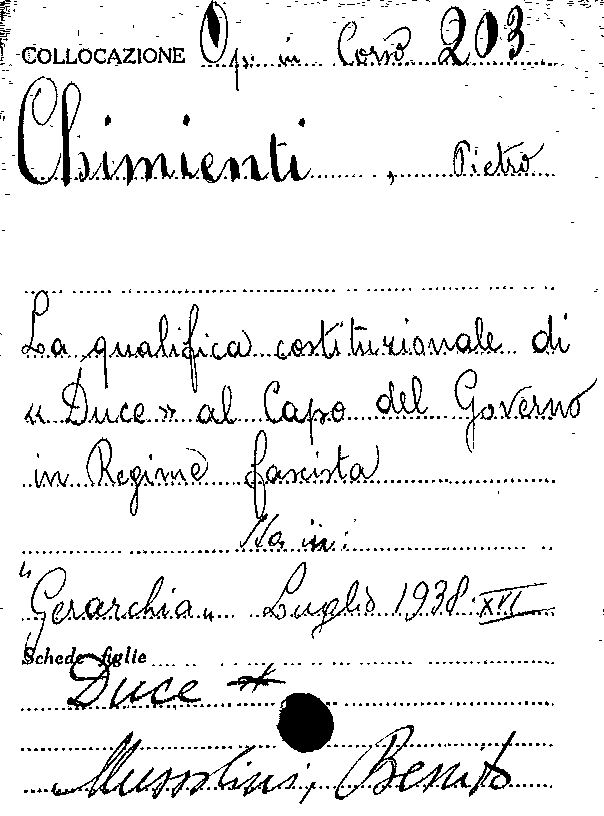 COLLOCAZIONE Op. in Corso 203
Chimienti, Pietro
La qualifica costituzionale di
« Duce » al Capo del Governo
in Regime fascista
Sta in:
"Gerarchia„ Luglio 1938·XVI
Schede figlie
Duce *
Mussolini, Benito